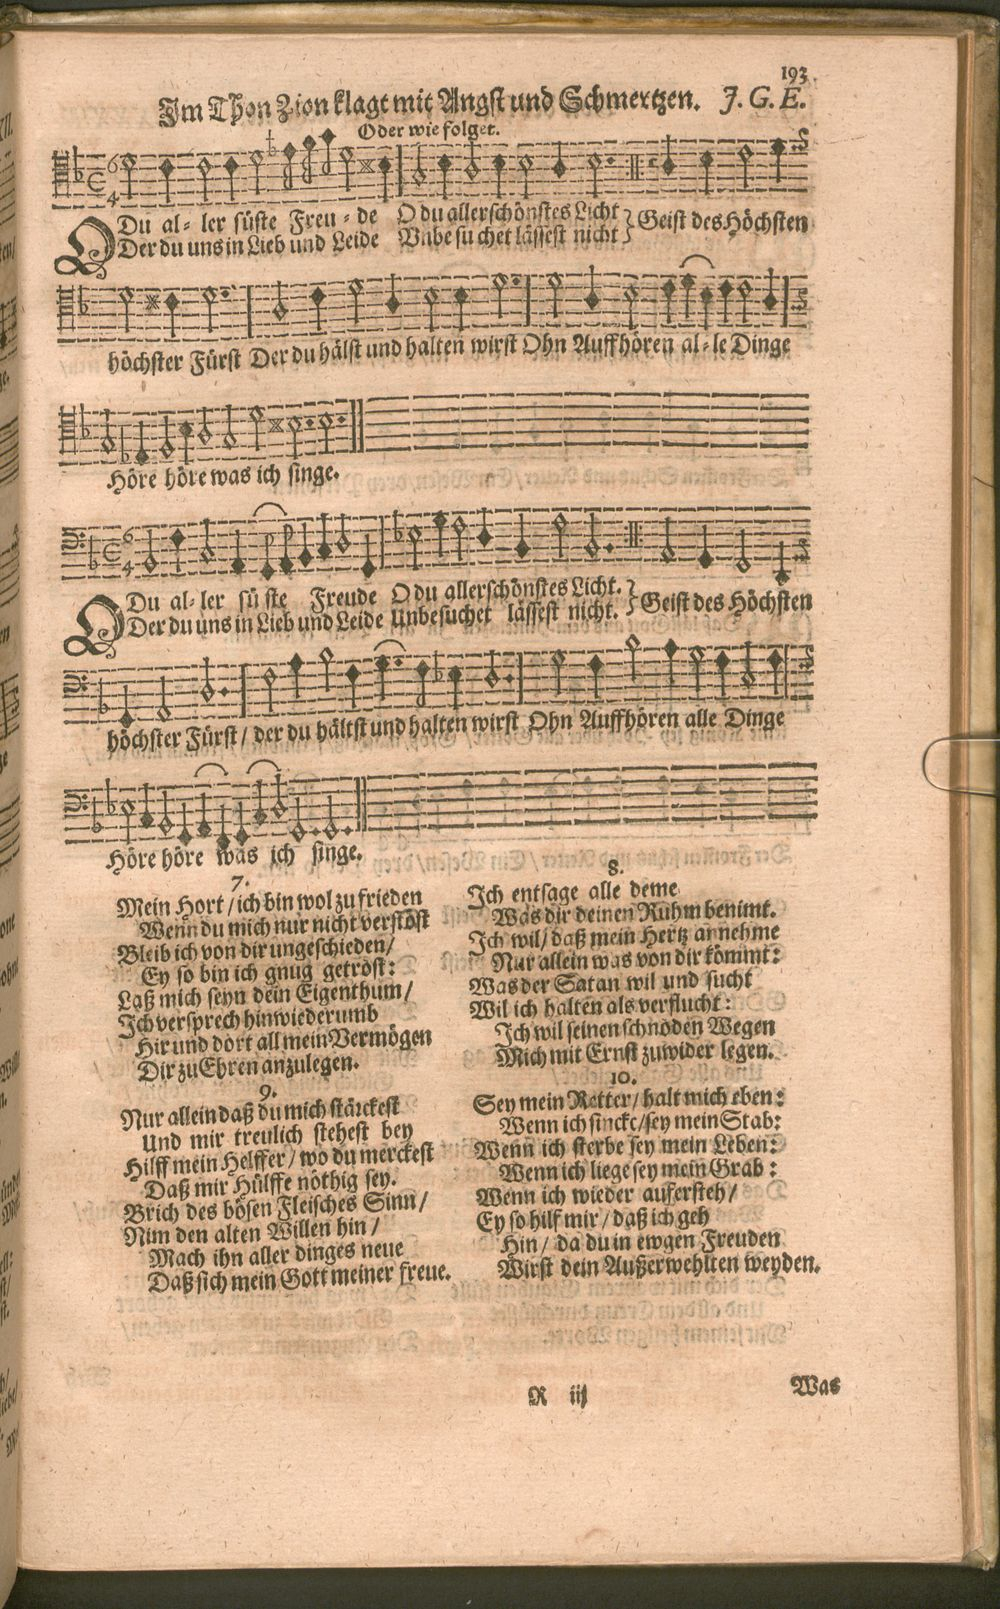 193.
Im Thon Zion klagt mit Angst und Schmertzen. J. G. E.
Oder wie folget.
O Du al- ler süste Freu- de O du allerschönstes Licht
Der du uns in Lieb und Leide Unbe su chet lässest nicht
Geist des Höchsten
höchster Fürst Der du hälst und halten wirst Ohn Auffhören al- le Dinge
Höre höre was ich singe.
O Du al- ler sü ste Freude O du allerschönstes Licht.
Der du uns in Lieb und Leide Unbesuchet lässest nicht.
Geist des Höchsten
höchster Fürst / der du hältst und halten wirst Ohn Auffhören alle Dinge
Höre höre was ich singe.
7.
Mein Hort / ich bin wol zu frieden
Wenn du mich nur nicht verstöst
Bleib ich von dir ungeschieden /
Ey so bin ich gnug getröst:
Laß mich seyn dein Eigenthum /
Ich versprech hinwiederumb
Hir und dort all mein Vermögen
Dir zu Ehren anzulegen.
8.
Ich entsage alle deme
Was dir deinen Ruhm benimt.
Ich wil / daß mein Hertz annehme
Nur allein was von dir kömmt:
Was der Satan wil und sucht
Wil ich halten als verflucht:
Ich wil seinen schnöden Wegen
Mich mit Ernst zuwider legen.
9.
Nur allein daß du mich stärckest
Und mir treulich stehest bey
Hilff mein Helffer / wo du merckest
Daß mir Hülffe nöthig sey.
Brich des bösen Fleisches Sinn /
Nim den alten Willen hin /
Mach ihn aller dinges neue
Daß sich mein Gott meiner freue.
10.
Sey mein Retter / halt mich eben:
Wenn ich sincke / sey mein Stab:
Wenn ich sterbe sey mein Leben:
Wenn ich liege sey mein Grab:
Wenn ich wieder aufersteh /
Ey so hilf mir / daß ich geh
Hin / da du in ewgen Freuden
Wirst dein Außerwehlten weyden.
R iij
Was